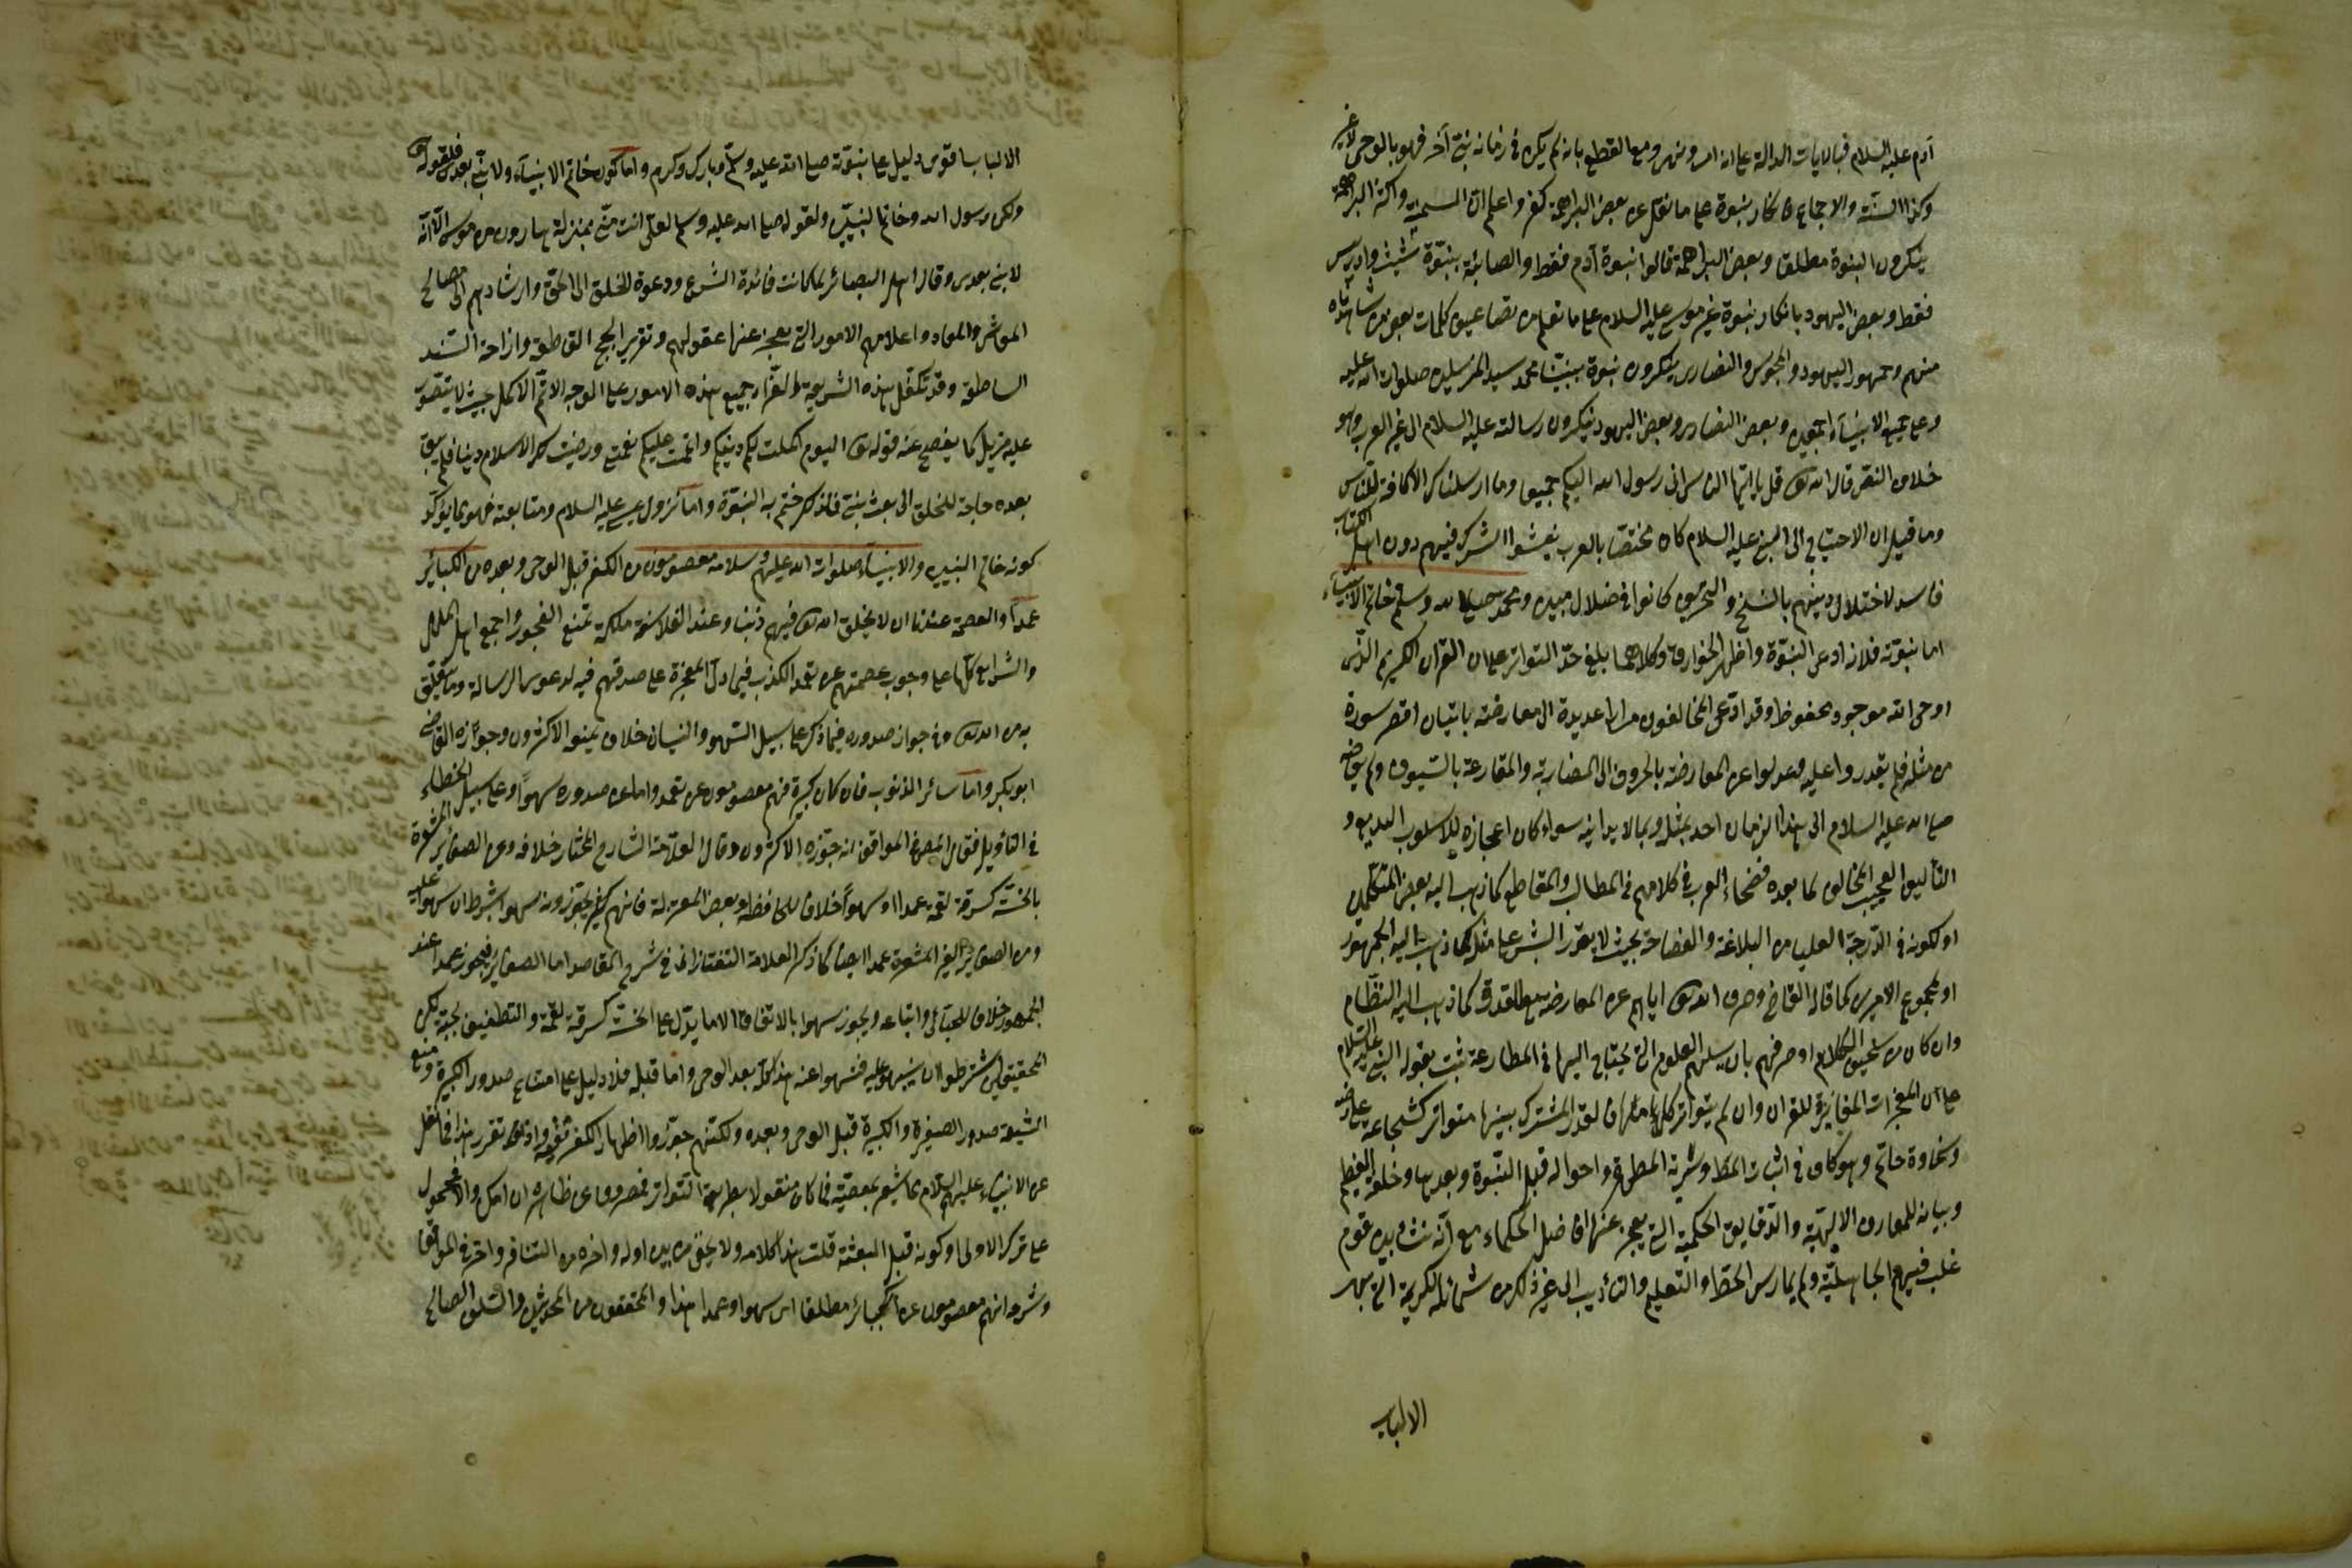 آدم عليه السلام فبالايات الدالة على انه امر ونهى ومع القطع بانه لم يكن فى زمانه نبى آخر فهو بالوحى لا غير
وكذا السنة والاجماع فانكار نبوة على ما نقل عن بعض البراهمة كفر واعلم ان السمنية واكثر البراهمة
ينكرون النبوة مطلقا وبعض البراهمة قالوا نبوة آدم فقط والصابئة بنبوة شيث وادريس
فقط وبعض اليهود بانكار نبوة غير موسى عليه السلام على ما نعلم من تضاعيف كلمات بعض من شاهدناه
منهم وجمهور اليهود والمجوس والنصارى ينكرون نبوة نبينا محمد سيد المرسلين صلوات الله عليه
وعلى جميع الانبياء اجمعين وبعض النصارى وبعض اليهود ينكرون رسالته عليه السلام الى غير العرب وهو
خلاف النص قال الله تعالى قل يا ايها الناس انى رسول الله اليكم جميعا وما ارسلناك الا كافة للناس
وما قيل ان الاحتياج الى النبى عليه السلام كان مختصا بالعرب لفشوا الشرك فيهم دون اهل الكتاب
فاسد لاختلال دينهم بالنسخ والتحريف كانوا فى ضلال مبين ومحمد صلى الله وسلم خاتم الانبياء
اما نبوته فلانه ادعى النبوة واظهر الخوارق وكلاهما بلغ حد التواتر على ان القران الكريم الذى
اوحى الله موجود محفوظ وقد ادعى المخالفون مرارا عديدة الى معارضته باتيان اقصر سورة
من مثله فلم يقدروا عليه وعدلوا عن المعارضة بالحروف الى المضاربة والمقارعة بالسيوف ولم يعارضه
صلى الله عليه السلام الى هذا الزمان احد بمثله وبما لا يدانيه سواء كان اعجازه للاسلوب البديع و
التأليف العجيب المخالف لما يعهده فصحاء العرب فى كلامهم فى المطالب والمقاطع كما ذهب اليه بعض المتكلمين
او لكونه فى الدرجة العليا من البلاغة والفصاحة بحيث لا يقدر البشر على مثله كما ذهب اليه الجمهور
او لمجموع الامرين كما قاله القاضى وصرف الله تعالى اياهم عن المعارضة مع القدرة كما ذهب اليه النظام
وان كان من سخيف الكلام او صرفهم بان سلبهم العلوم التى يحتاج اليها فى المعارضة ثبت بقوله النبى عليه السلام
على ان المعجزات المغايرة للقران وان لم يتواتر كل واحد منها فالقدر المشترك بينها متواتر كشجاعة على رضه
وسخاوة حاتم وهو كاف فى اثبات المط وسيرته المطهرة واحواله قبل النبوة وبعدها وخلقه العظيم
وبيانه للمعارف الالهية والدقايق الحكمية التى يعجز عنها افاضل الحكماء مع انه نشأ بين قوم
غلب فيهم الجاهلية ولم يمارس الخط والتعليم والتأديب الى غير ذلك من شمائله الكريمة التى بهر
الالباب
الالباب اقوى دليل على نبوته صلى الله عليه وسلم وبارك وكرم واما كونه خاتم الانبياء ولا نبى بعده فلقوله تعالى
ولكن رسول الله وخاتم النبيين ولقوله صلى الله عليه وسلم لعلى انت منى بمنزلة هارون من موسى الا انه
لا نبى بعدى وقال اهل البصائر لما كانت فائدة الشرع ودعوة الخلق الى الحق وارشادهم الى مصالح
المعاش والمعاد واعلامهم الامور التى يعجز عنها عقولهم وتقرير الحجج القاطعة وازاحة الشبه
الساطعة وقد تكفل هذه الشريعة الغراء جميع هذه الامور على الوجه الاتم الاكمل بحيث لا يتصور
عليه مزيد كما يفصح عنه قوله تعالى اليوم اكملت لكم دينكم واتممت عليكم نعمتى ورضيت لكم الاسلام دينا فلم يبق
بعده حاجة للخلق الى بعث نبى فلذلك ختم به النبوة واما نزول عيسى عليه السلام ومتابعته فهو مما يؤكد
كونه خاتم النبيين والانبياء صلوات الله عليهم وسلامه معصومون من الكفر قبل الوحى وبعده من الكبائر
عمدا والعصمة عندنا ان لا يخلق الله تعالى فيهم ذنبا وعند الفلاسفة ملكة تمنع الفجور واجمع اهل الملل
والشرائع كلها على وجوب عصمتهم عن تعمد الكذب فيما دل المعجزة على صدقهم فيه لدعوى الرسالة وما يتعلق
به من الله تعالى وفى جواز صدوره فيما ذكر على سبيل السهو والنسيان خلاف يمنعه الاكثرون وجوزه القاضى
ابو بكر واما سائر الذنوب فان كان كبيرة فهم معصومون عن تعمد واما عن صدوره سهوا وعلى سبيل الخطاء
فى التأويل فقال المص فى المواقف انه جوزه الاكثرون وقال العلامة الشارح المختار خلافه وعن الصغائر المشعرة
بالخسة كسرقة لقمة عمدا او سهوا خلافا للجاحظ وبعض المعتزلة فانهم يجوزونه سهوا بشرط ان سهوا عليه
ومن الصغائر الغير المشعرة عمدا ايضا كما ذكر العلامة التفتازانى فى شرح المقاصد اما الصغائر فيجوز عمدا عند
الجمهور خلافا للجبائى واتباعه ويجوز سهوا بالاتفاق الا ما يدل على الخسة كسرقة لقمة والتطفيف بحبة لكن
المحققين اشترطوا ان ينبهوا عليه فينتهوا عنه هذا كله بعد الوحى واما قبله فلا دليل على امتناع صدور الكبيرة ومنع
الشيعة صدور الصغيرة والكبيرة قبل الوحى وبعده ولكنهم جوزوا اظهار الكفر تقية واذا تقرر هذا فما نقل
عن الانبياء عليهم السلام مما يشعر بمعصية فما كان منقولا بطريق التواتر فمصروف عن ظاهره ان امكن والا فمحمول
على ترك الاولى او كونه قبل البعثة قلت هذا كلامه ولا يخفى ما بين اوله واخره من التنافر واختر فى المواقف
وشرحه انهم معصومون عن الكبائر مطلقا اى سهوا وعمدا هذا والمحققون من المحدثين والسلف الصالح